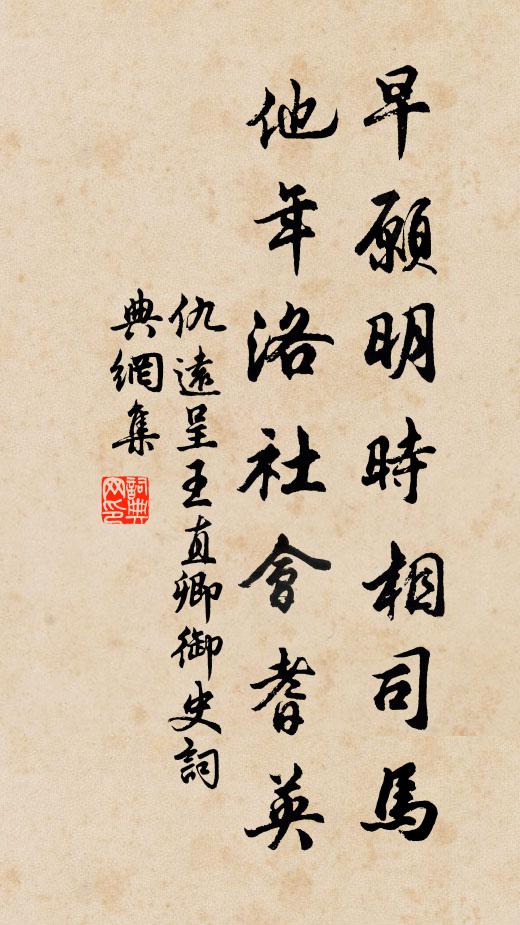 早願明時相司馬
他年洛社會耆英
仇遠呈王直卿御史詞
典網集
詞典
网印